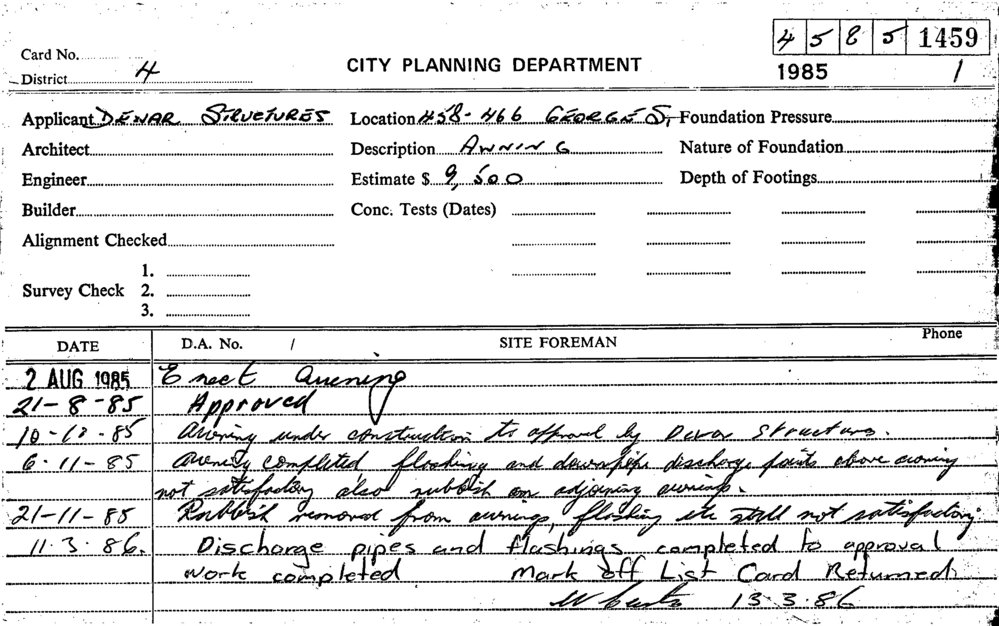 4 5 8 5 1459
Card No.
District 4
CITY PLANNING DEPARTMENT
1985 1
Applicant DEWAR STRUCTURES Location 458-466 GEORGE S, Foundation Pressure
Architect Description AWNING Nature of Foundation
Engineer Estimate $ 9,500 Depth of Footings
Builder Conc. Tests (Dates)
Alignment Checked
1.
Survey Check 2.
3.
DATE D.A. No. / SITE FOREMAN Phone
2 AUG 1985 Erect awning
21-8-85 Approved
10-10-85 Awning under construction to approval by Dewar Structures.
6-11-85 Awning completed flashing and downpipe discharge points above awning
not satisfactory also rubbish on adjoining awnings.
21-11-85 Rubbish removed from awnings, flashing etc still not satisfactory.
11.3.86. Discharge pipes and flashings completed to approval
work completed Mark off List Card Returned
13.3.86